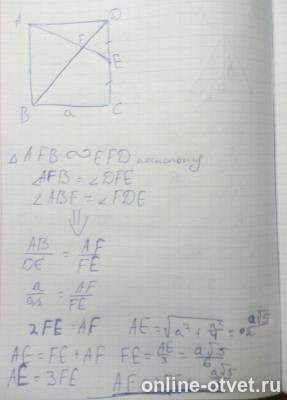 A D
F
E
B a C
△ AFB ∾ EFD поскольку
∠AFB = ∠DFE
∠ABF = ∠FDE
⇓
AB/DE = AF/FE
= AF/FE
2FE = AF AE = √(a² + a²/4) = a√5/2
AE = FE + AF FE = AE/3 = a√5/6
AE = 3FE AF = a√5
online-otvet.ru